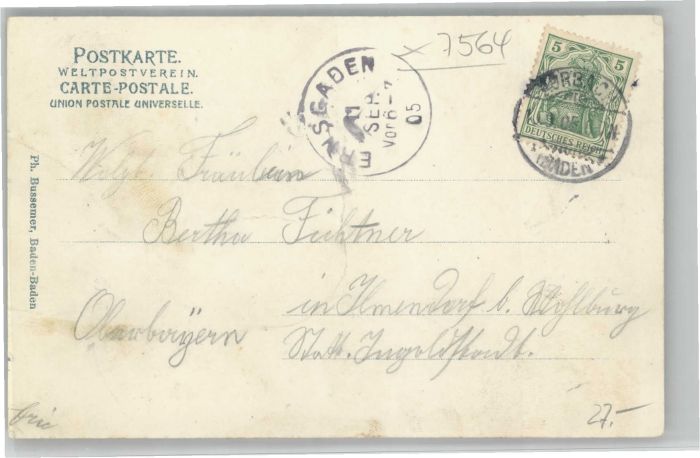 POSTKARTE.
WELTPOSTVEREIN.
CARTE-POSTALE.
UNION POSTALE UNIVERSELLE.
Ph. Bussemer, Baden-Baden
ERNSGADEN
11
SEP.
Vor 6-7
05
x 7564
5 5
DEUTSCHES REICH
BADEN
Fräulein
Bertha Fichtner
in Ilmendorf b.
Oberbayern
Stat. Ingolstadt.
27.-